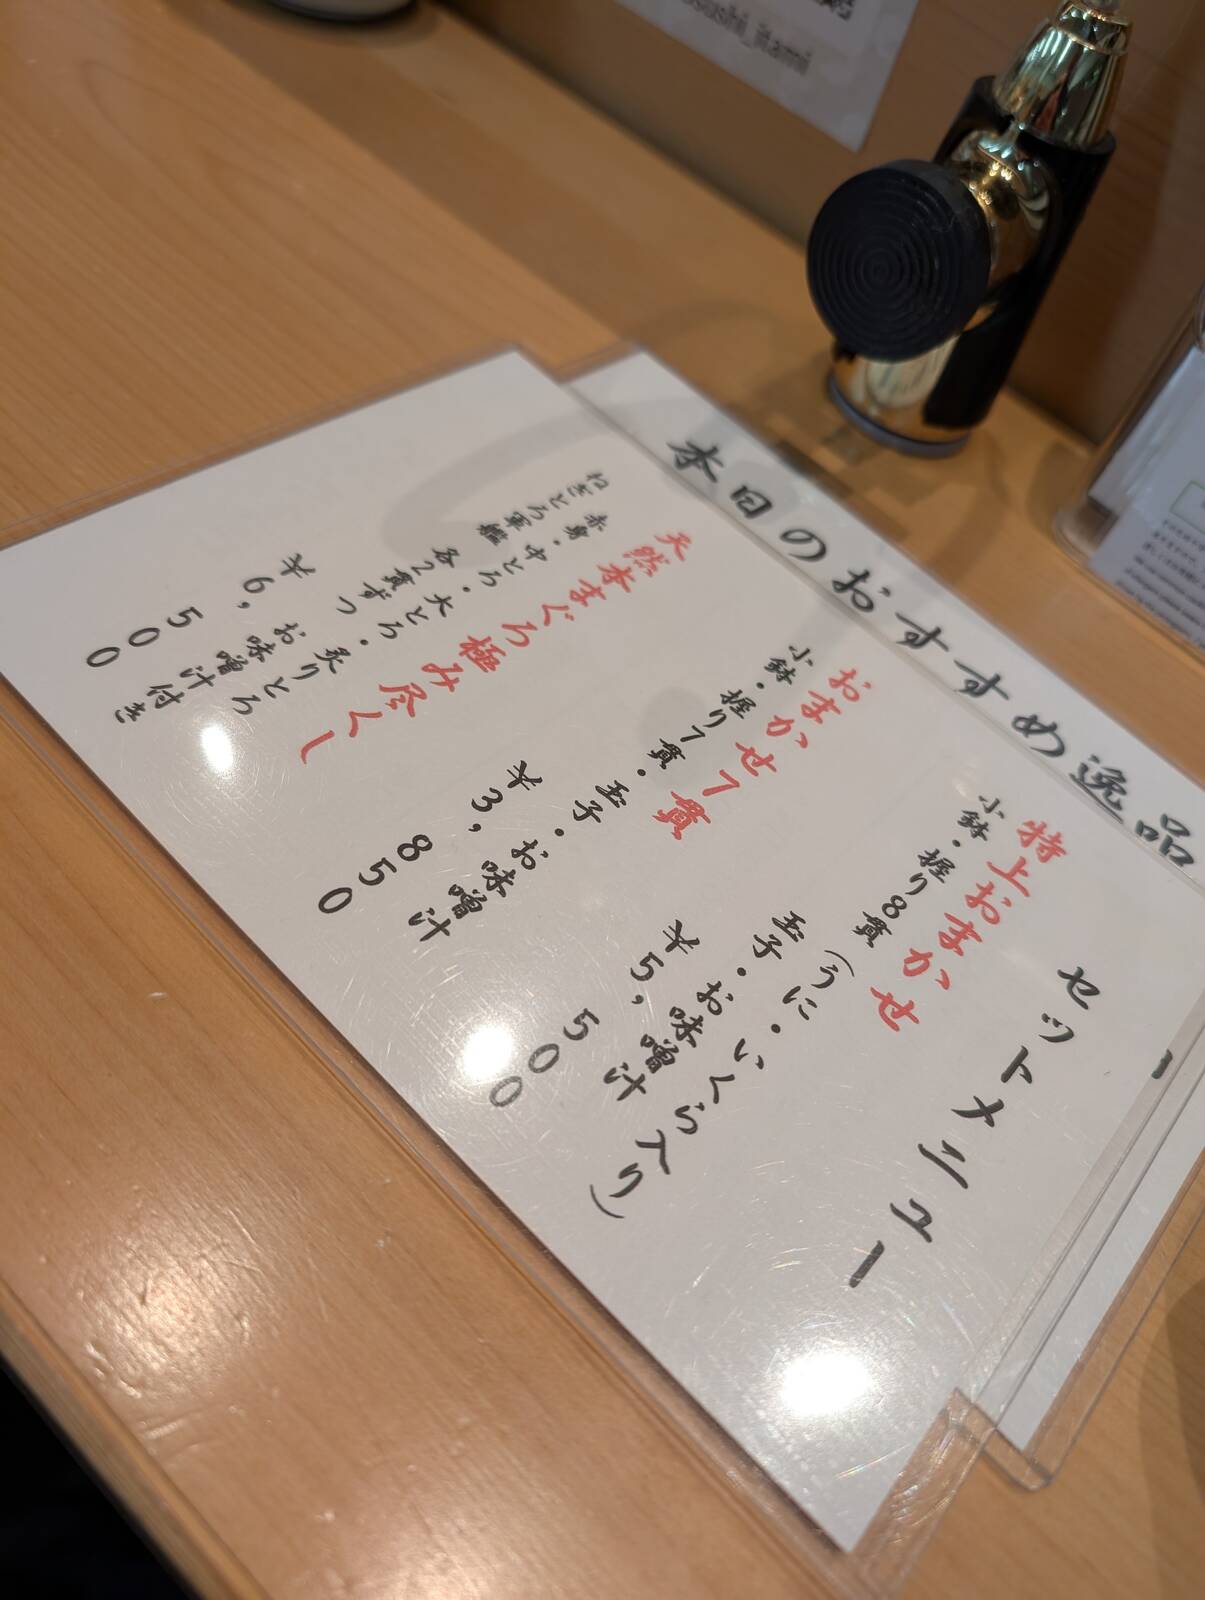 本日のおすすめ逸品
セットメニュー
特上おまかせ
小鉢・握り8貫(うに・いくら入り)
玉子・お味噌汁
¥5,500
おまかせ7貫
小鉢・握り7貫・玉子・お味噌汁
¥3,850
天然本まぐろ極み尽くし
赤身・中とろ・大とろ・炙りとろ
各2貫ずつ
ねぎとろ軍艦
お味噌汁付き
¥6,500